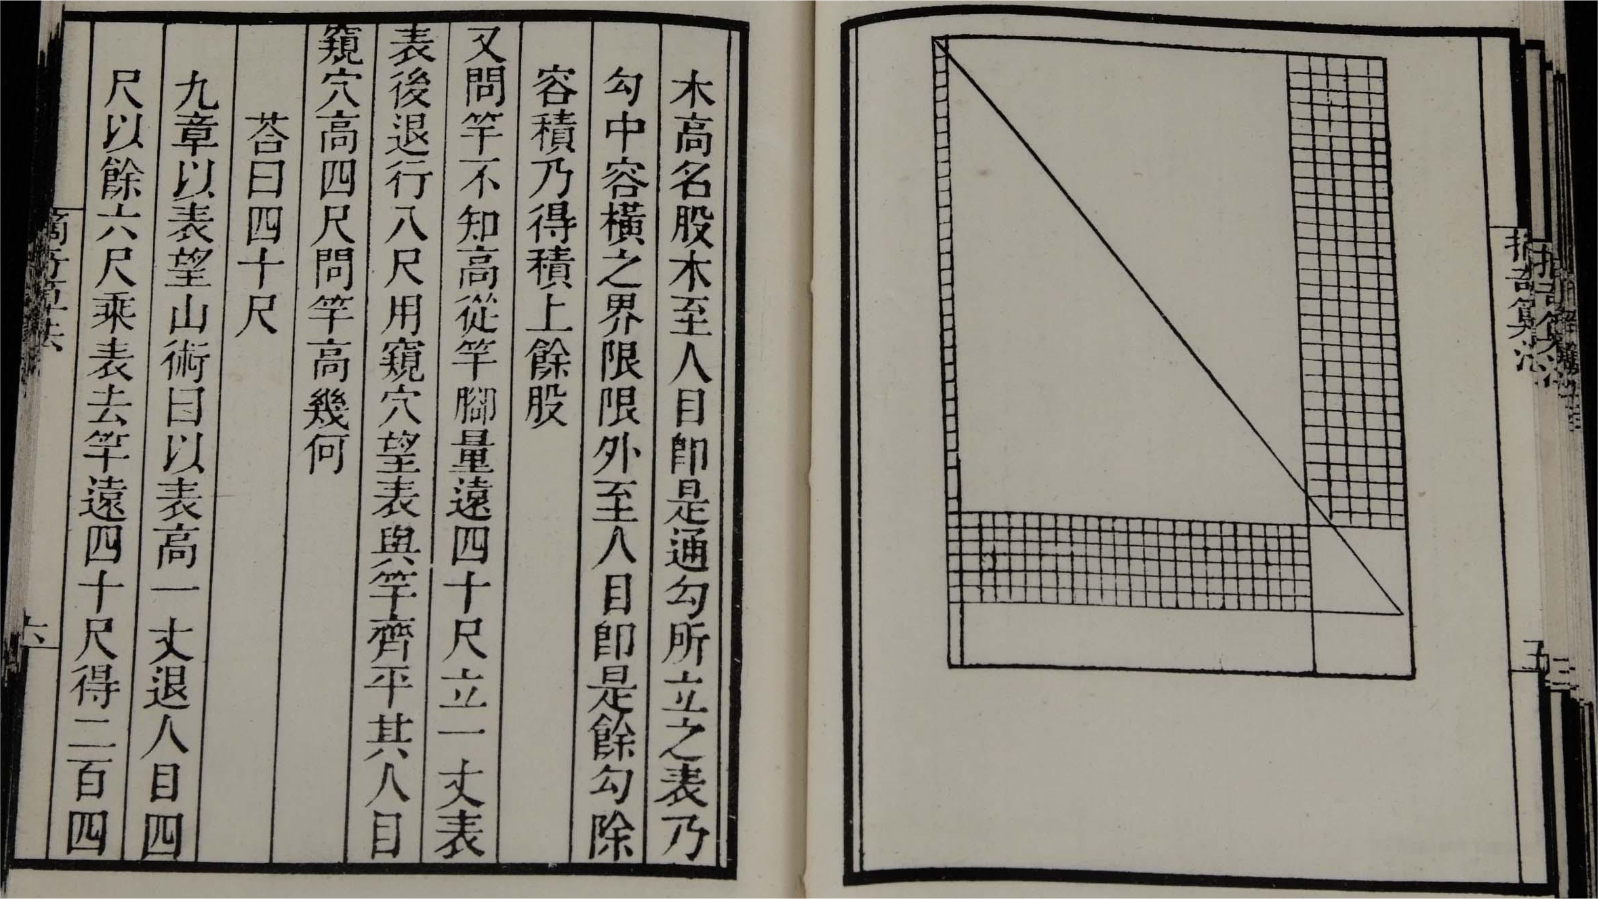 摘奇算法
五
木高名股木至人目卽是通勾所立之表乃
勾中容橫之界限限外至人目卽是餘勾除
容積乃得積上餘股
又問竿不知高從竿腳量遠四十尺立一丈表
表後退行八尺用窺穴望表與竿齊平其人目
窺穴高四尺問竿高幾何
荅曰四十尺
九章以表望山術曰以表高一丈退人目四
尺以餘六尺乘表去竿遠四十尺得二百四
六